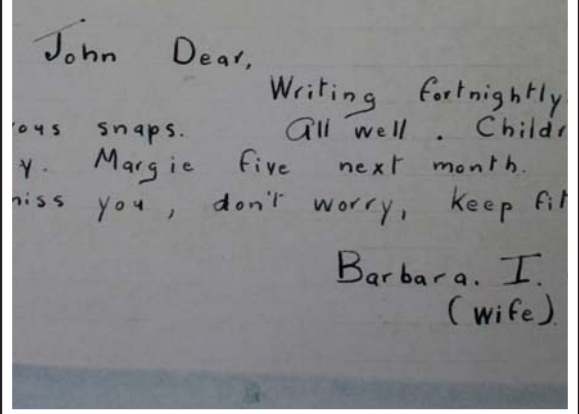 John Dear,
Writing fortnightly
ous snaps. All well. Childr
y. Margie five next month.
miss you, don't worry, keep fit
Barbara. I.
(wife)